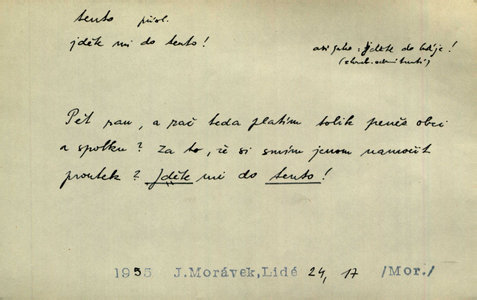 tento přísl.
jděte mi do tento!
asi jako: Jděte do háje!
Pět ran, a zač teda platím tolik peněz obci
a spolku? Za to, že si smím jenom namočit
proutek? Jděte mi do tento!
1955 J.Morávek,Lidé 24, 17 /Mor./